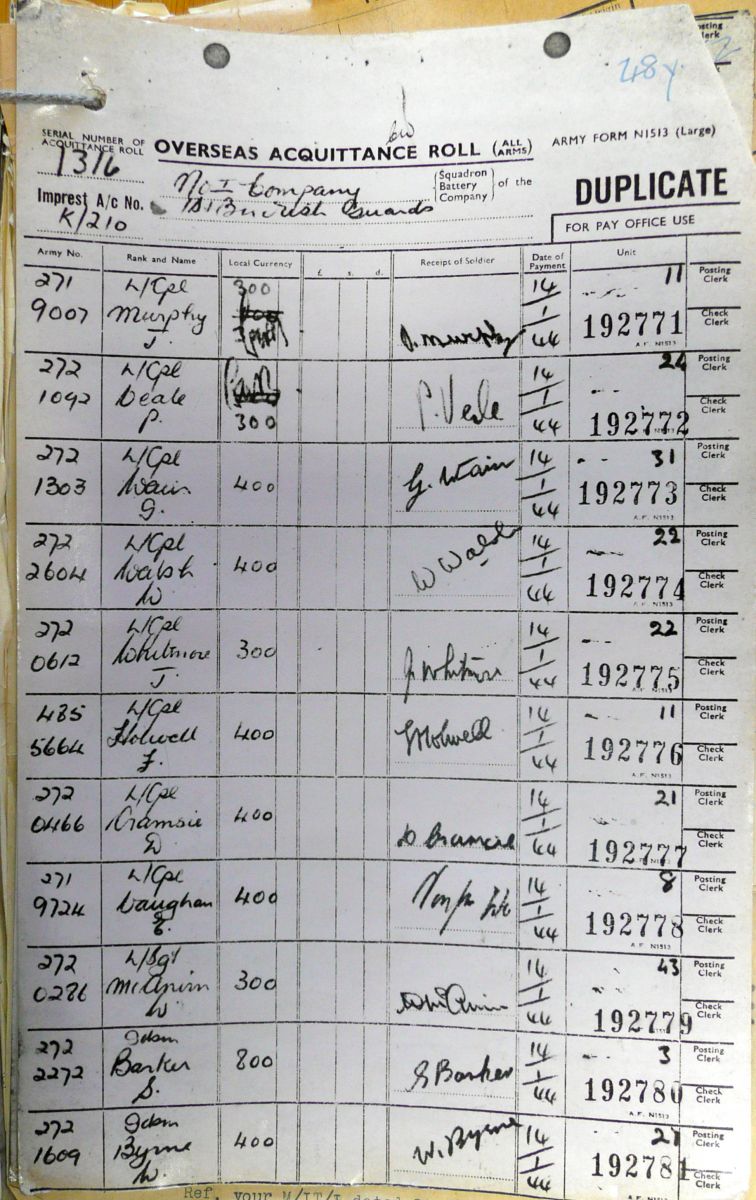 48y.
SERIAL NUMBER OF
ACQUITTANCE ROLL
1316
OVERSEAS ACQUITTANCE ROLL (ALL ARMS)
ARMY FORM N1513 (Large)
Imprest A/c No.
K/210
No I Company
1st Bn Irish Guards
Squadron
Battery
Company
of the
DUPLICATE
FOR PAY OFFICE USE
Army No. Rank and Name Local Currency £ s. d. Receipt of Soldier Date of Payment Unit
271 L/Cpl 300 14 11 Posting Clerk
9007 Murphy J. Murphy 1 192771 Check Clerk
J. 44 A.F. N1513
272 L/Cpl 14 24 Posting Clerk
1092 Veale P. Veale 1 Check Clerk
P. 300 44 192772 N1513
272 L/Cpl 14 31 Posting Clerk
1303 Wain 400 G. Wain 1 192773 Check Clerk
G. 44 A.F. N1513
272 L/Cpl 14 22 Posting Clerk
2604 Walsh 400 W Walsh 1 192774 Check Clerk
W. 44 A.F. N1513
272 L/Cpl 14 22 Posting Clerk
0612 Whitmore 300 J Whitmore 1 192775 Check Clerk
J. 44 A.F. N1513
485 L/Cpl 14 11 Posting Clerk
5664 Holwell 400 F Holwell 1 192776 Check Clerk
F. 44 A.F. N1513
272 L/Cpl 14 21 Posting Clerk
0466 400 D 1 192777 Check Clerk
D 44 A.F. N1513
271 L/Cpl 14 8 Posting Clerk
9724 Vaughan 400 1 192778 Check Clerk
E. 44 A.F. N1513
272 L/Sgt 14 43 Posting Clerk
0286 300 1 192779 Check Clerk
W. 44
272 Gdsm 14 3 Posting Clerk
2272 Barker 800 S Barker 1 192780 Check Clerk
S. 44 A.F. N1513
272 Gdsm 14 27 Posting Clerk
1609 Byrne 400 W. Byrne 1 192781 Check Clerk
W. 44
Ref. your